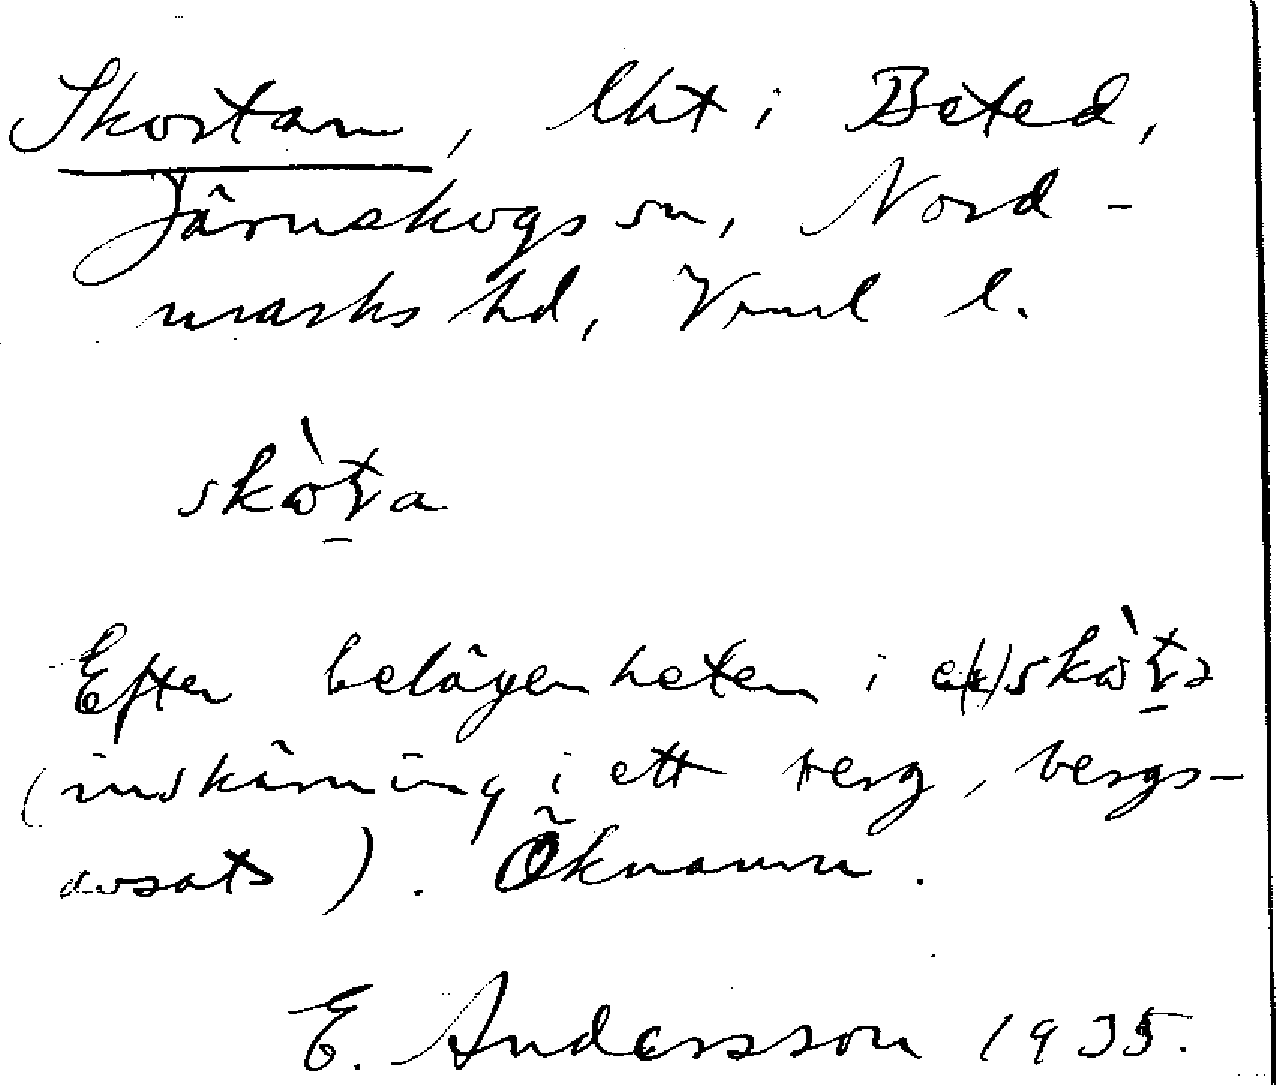 Skortan, lht i Beted,
Järnskogs sn, Nord-
marks hd, Vrml l.
skò̱ṯa
Efter belägenheten i e(n) skò̱ṯa
(inskärning i ett berg, bergs-
avsats). Öknamn.
E. Andersson 1935.